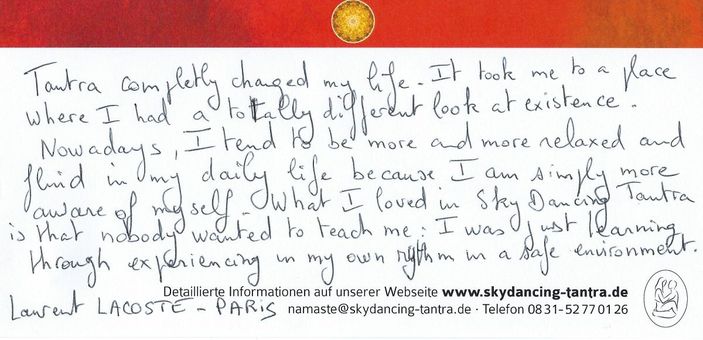 Tantra completly changed my life. It took me to a place
where I had a totally different look at existence.
Nowadays, I tend to be more and more relaxed and
fluid in my daily life because I am simply more
aware of myself. What I loved in Sky Dancing Tantra
is that nobody wanted to teach me : I was just learning
through experiencing in my own rythm in a safe environment.
Detaillierte Informationen auf unserer Webseite www.skydancing-tantra.de
Laurent LACOSTE - PARIS namaste@skydancing-tantra.de · Telefon 0831-52770126